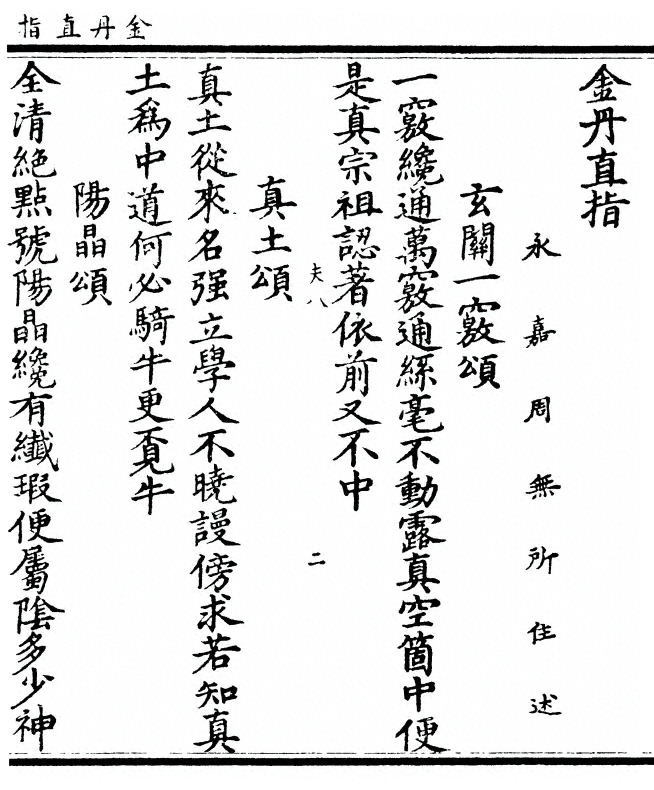 金丹直指
金丹直指
永嘉周無所住述
玄關一竅頌
一竅纔通萬竅通絲毫不動露真空箇中便
是真宗祖認著依前又不中
夫八
二
真土頌
真土從來名强立學人不曉謾傍求若知真
土爲中道何必騎牛更覔牛
陽晶頌
全清絶點號陽晶纔有纖瑕便屬陰多少神